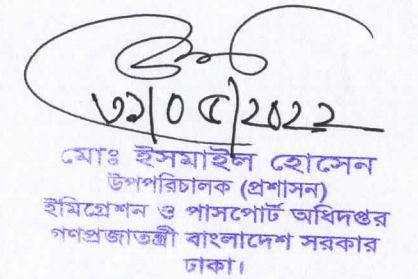 ৩১|০৫|২০২২
মোঃ ইসমাইল হোসেন
উপপরিচালক (প্রশাসন)
ইমিগ্রেশন ও পাসপোর্ট অধিদপ্তর
গণপ্রজাতন্ত্রী বাংলাদেশ সরকার
ঢাকা।